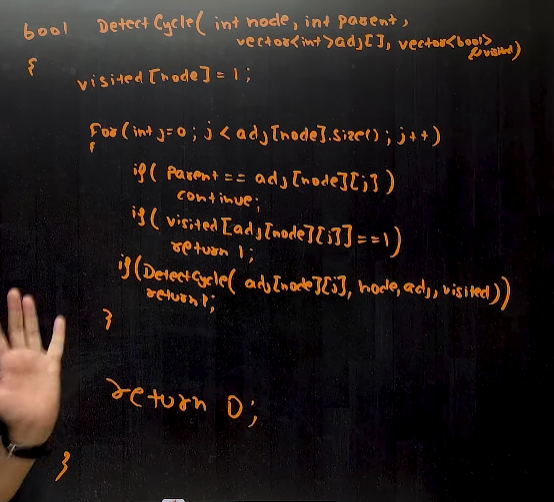 bool DetectCycle( int node, int parent,
vector<int>adj[], vector<bool>
&visited)
{
visited[node] = 1;
for(int j=0; j < adj[node].size(); j++)
{
if( Parent == adj[node][j])
continue;
if( visited[adj[node][j]]==1)
return 1;
if(DetectCycle( adj[node][j], node, adj, visited))
return 1;
}
return 0;
}